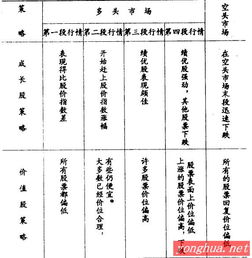 策略
多头市场
空头市场
第一段行情
第二段行情
第三段行情
第四段行情
成长股策略
表现得比股价指数差
开始赶上股价指数涨幅
绩优股表现颇佳
绩优股强劲，其他股票下跌
在空头市场末段迅速下跌
价值股策略
所有股都偏低
有些仍便宜。大多数已经价位合理，
许多股票价位偏高
股票表面上价位偏低
上涨的股票价位偏高，
所有的股票回复价位偏低
yonghua.net